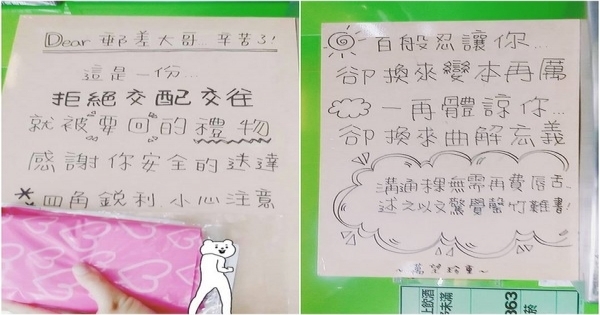 Dear 郵差大哥... 辛苦了!
這是一份...
拒絕交配交往
就被要回的禮物
感謝你安全的送達
*四角銳利小心注意
百般忍讓你...
卻換來變本再厲
一再體諒你...
卻換來曲解忘義
溝通無需再費唇舌..
述之以文驚覺罄竹難書!
~萬望珍重~
上飲酒
未滿
363
菸